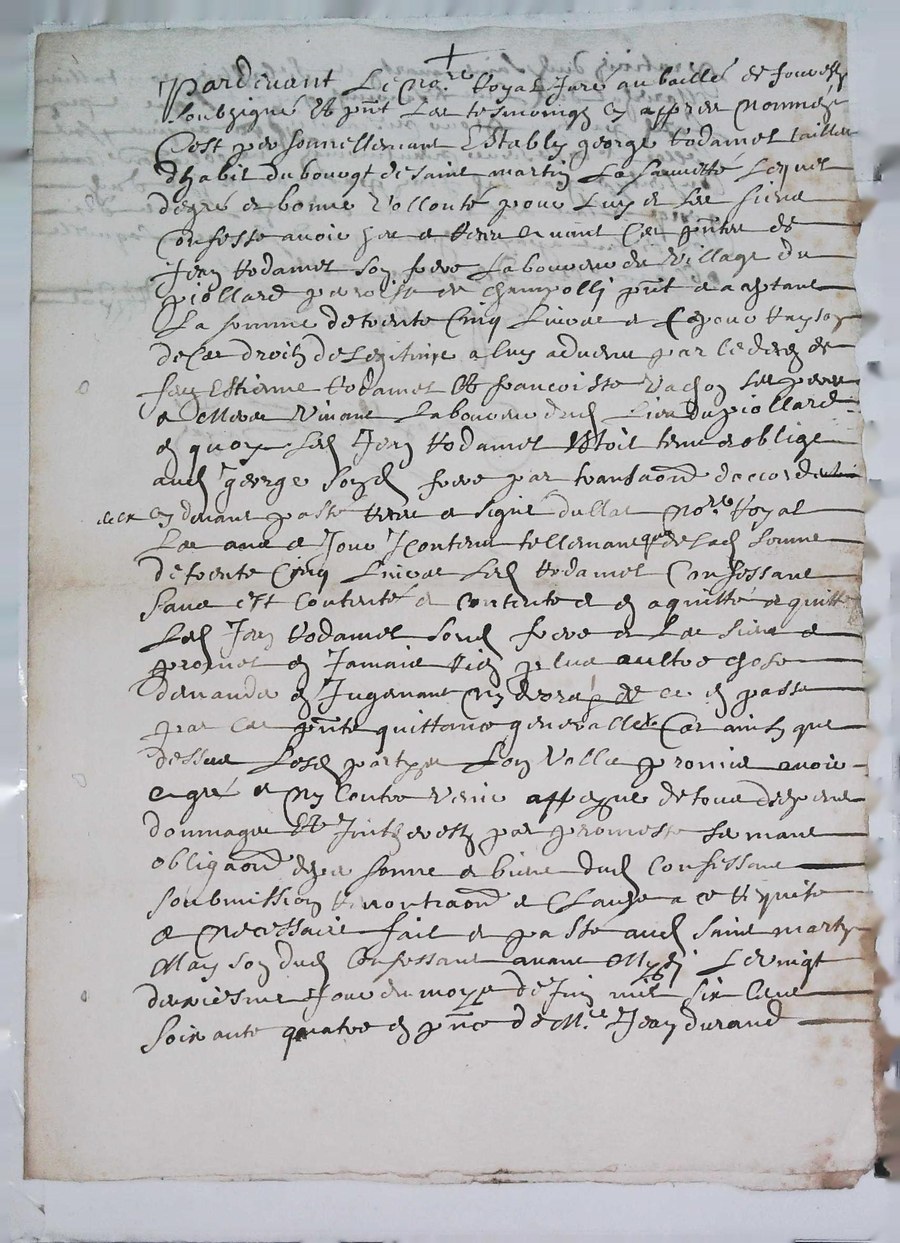 Pardevant Le no.re Royal Juré au bailla de fourestz
soubzigné Et pnt Les tesmoingz cy appres nommés
C'est personnellemant Estably george Rodamel tailleur
d'habit du bourgt de saint martin La sauvetté Lequel
de gré et bonne vollonté pour Luy et Les siens
Confesse avoir heu et Receu avant Ces pntes de
Jean Rodamel son frere Laboureur du village du
piollard parroisse de champolli pnt et acptant
La somme de trente Cinq Livres et Ce pour Rayson
de Ces droitz de Legitime a luy advenu par le deces de
feu Estienne Rodamel Et françoise vachon Les pere
et Mere vivant Laboureur dud Lieu du piollard
en quoy Led Jean Rodamel Estoit tenu et obligé
aud george Sond frere par transaõn d'accord
cy devant passé Receu et signé dullac no.re Royal
Les an et Jour y contenu tellemant que de Lad somme
de trente Cinq Livres Led Rodamel Confessant
s'ant est Contenté et contente et en a quitté et quitte
Led Jean Rodamel Sond frere et Les siens et
promet en Jamais Rien plus aultre chose
demander en Jugemant ny dehors de ce en passe
par Ces pnte quittance generalle Car ainsy que
dessus Lesd partyes L'on vollu promis avoir
a gré et ny Contre venir a ppeyne de tous despens
dommages Et Inthrestz par promesse Sermant
obligaõn de personne et biens dud Confessant
Soubmission Renontiaõn et Clauze a ce Requise
et necessaire fait et passé aud Saint martin
Mayson dud Confessant avant Midy Le vingt
deuxiesme Jour du moys de Juin mil six Cens
soixante quatre en pnce de M.e Jean durand